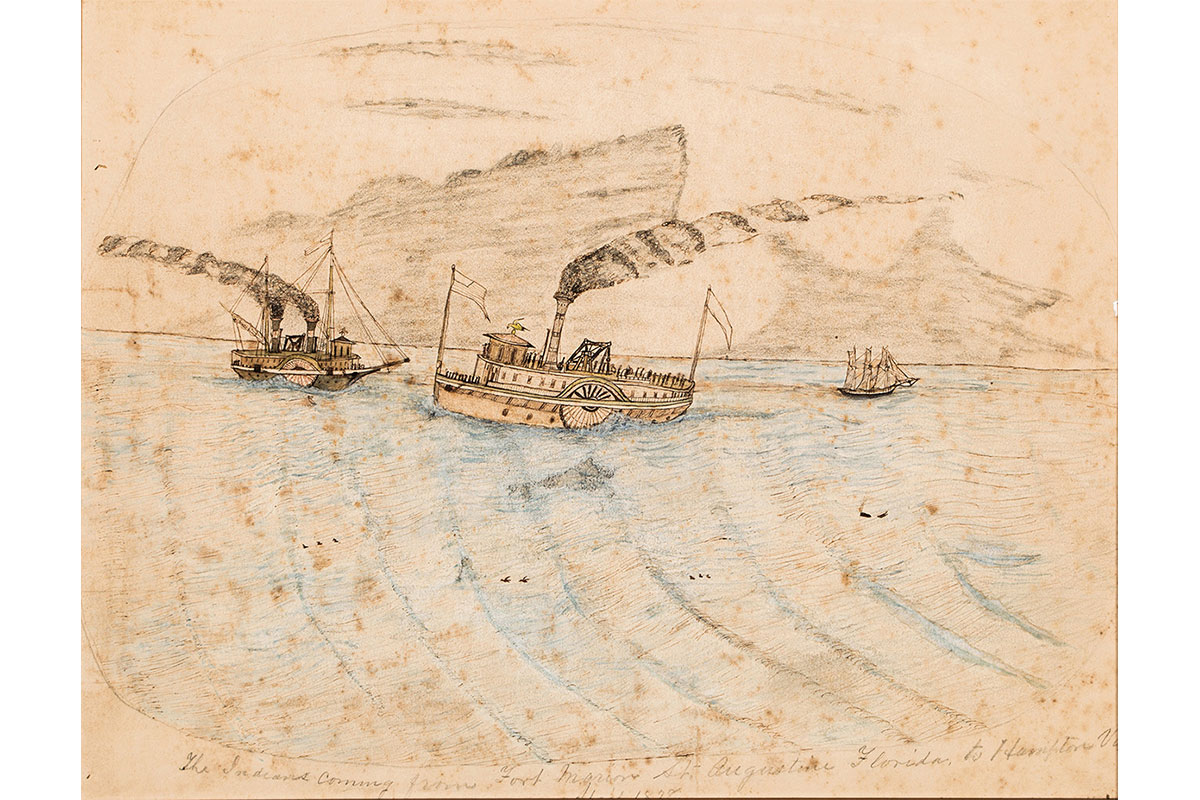 The Indians coming from Fort Marion St. Augustine Florida, to Hampton Va